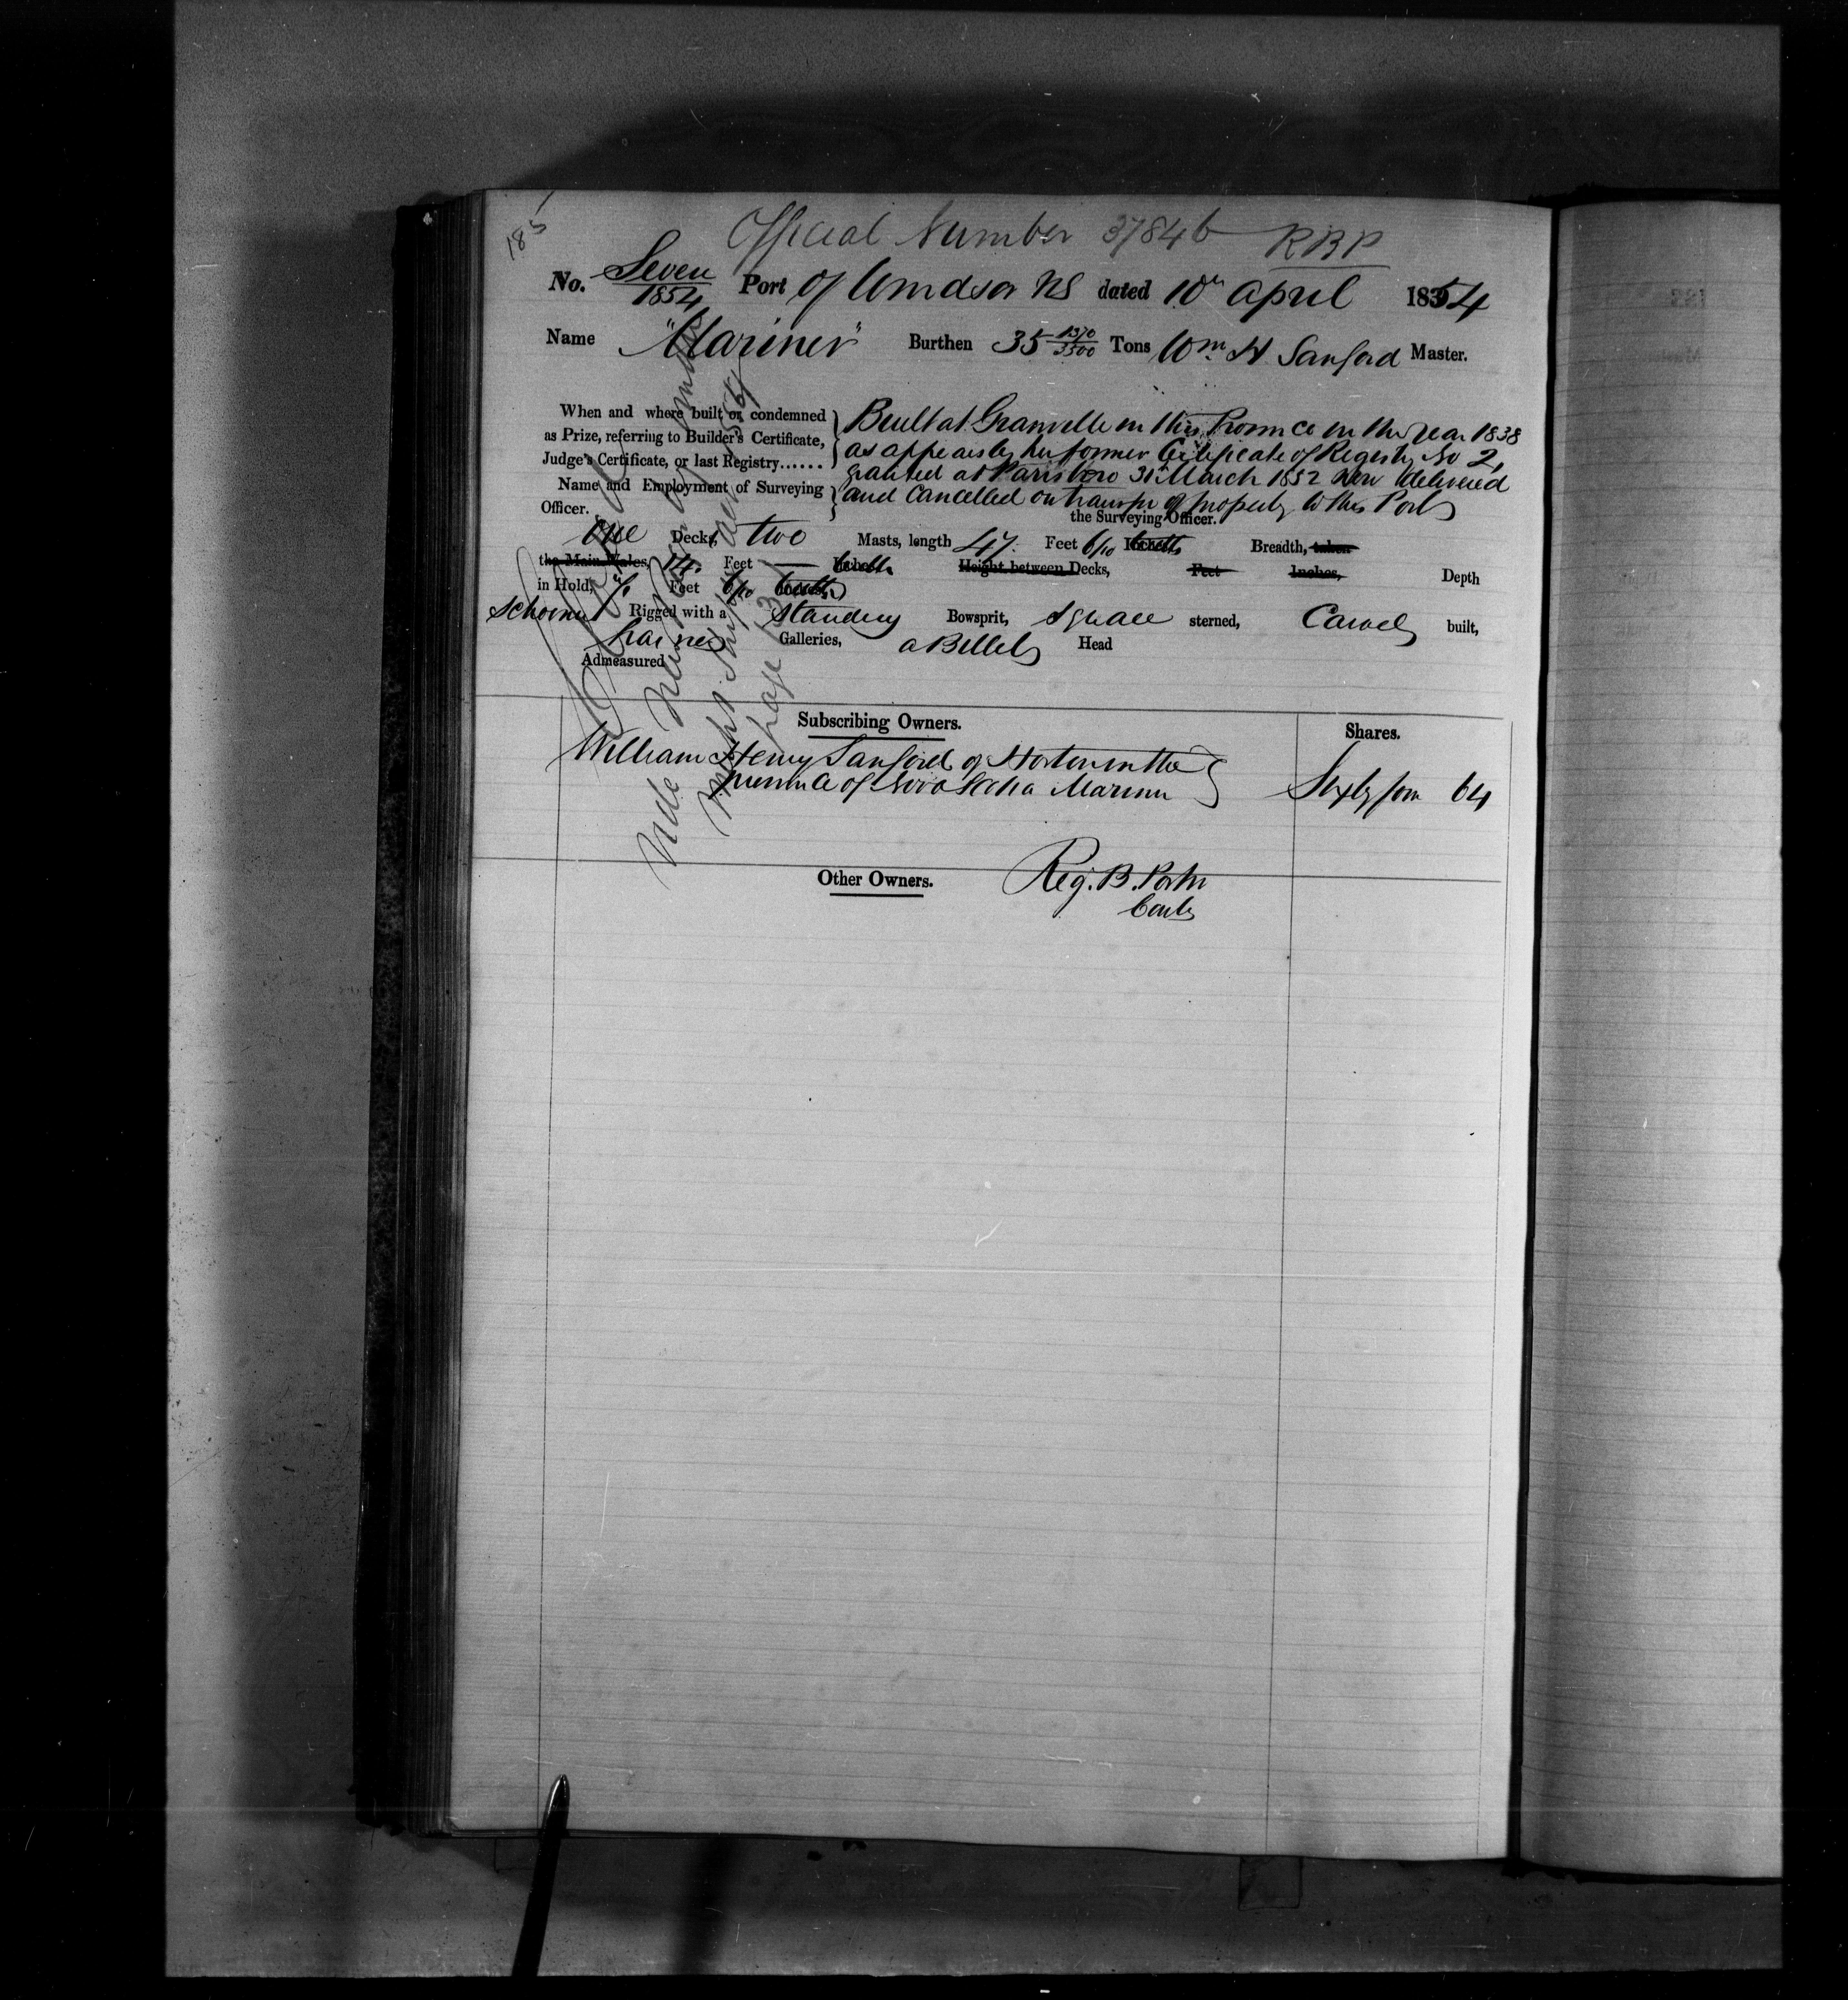 185
Official Number 37846 RBP
No. Seven/1854 Port of Windsor NS dated 10th April 1854
Name "Mariner" Burthen 35 1370/3500 Tons Wm H Sanford Master.
When and where built or condemned
as Prize, referring to Builder's Certificate,
Judge's Certificate, or last Registry......
Name and Employment of Surveying
Officer.
Built at Granville in this Province in the Year 1838
as appears by her former Certificate of Registry No 2,
granted at Parrsboro 31st March 1852 Now delivered
and Cancelled on transfer of property to this Port
the Surveying Officer.
One Decks, two Masts, length 47. Feet 6/10 Inches Breadth, taken
the Main Wales, 14. Feet — Inches Height between Decks, Feet Inches, Depth
in Hold, 7. Feet 6/10 tenths
Schooner Rigged with a Standing Bowsprit, Square sterned, Carvel built,
Galleries, a Billet Head
Admeasured
Subscribing Owners. Shares.
William Henry Sanford of Horton in the
Province of Nova Scotia Mariner Sixty four 64
Other Owners. Reg. B. Porter
Contr
Vide New
page 131